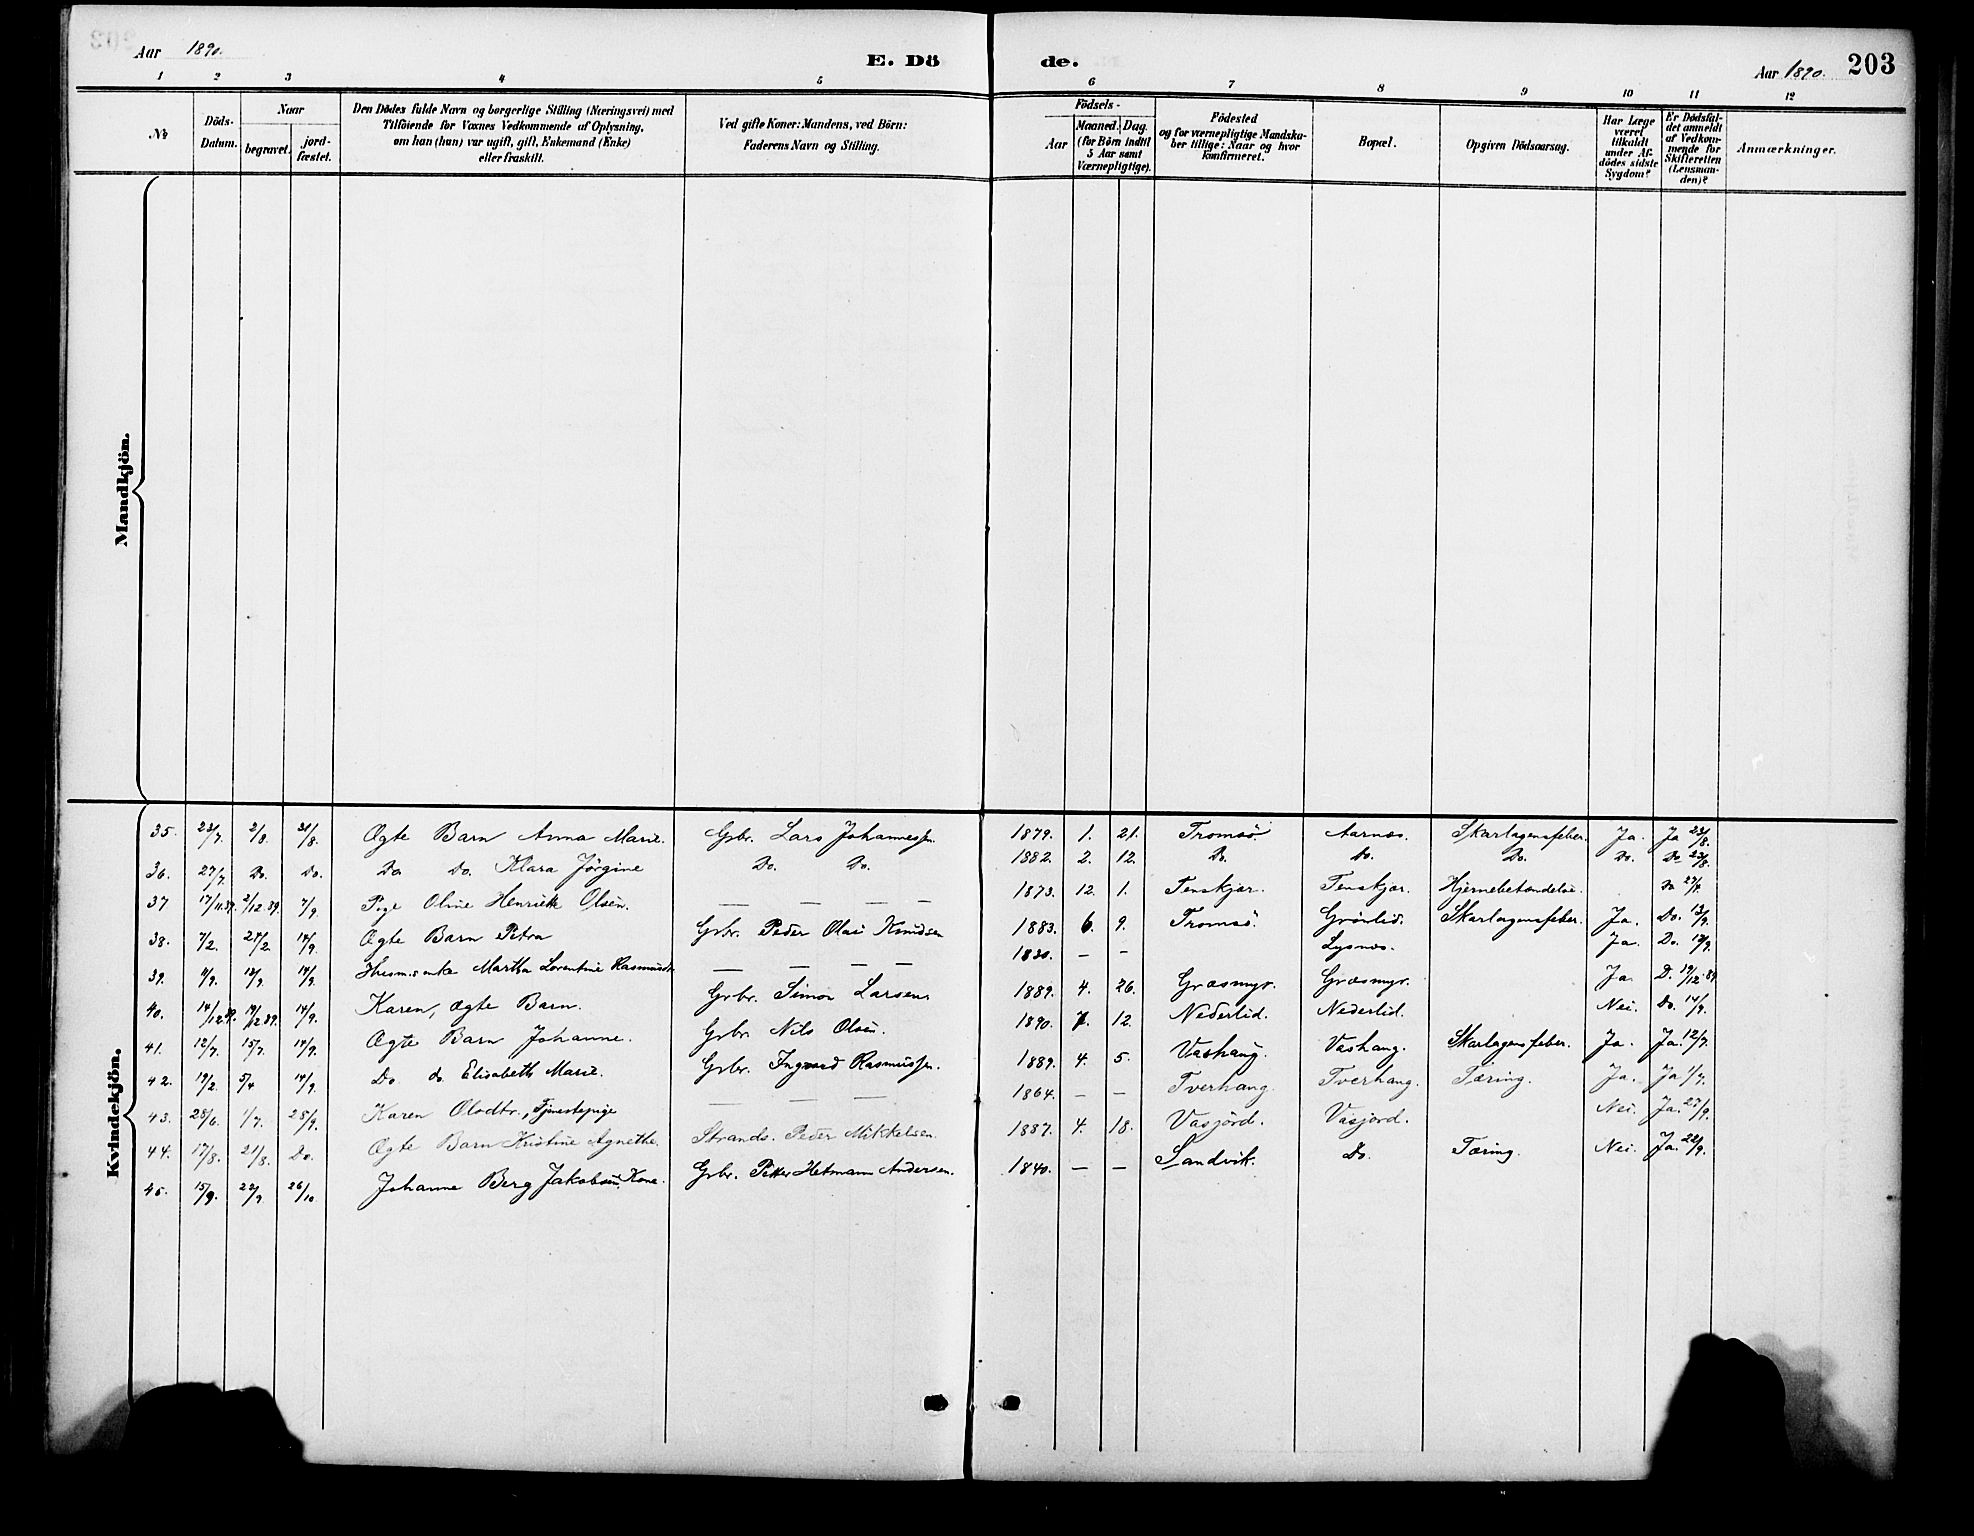 Aar 1890.
E. Dö
de.
Aar 1890.
203
1 2 3 4 5 6 7 8 9 10 11 12
No
Döds-Datum.
Naar
begravet.
jord-fæstet.
Den Dödes fulde Navn og borgerlige Stilling (Næringsvei) med
Tilföiende for Voxnes Vedkommende af Oplysning,
om han (hun) var ugift, gift, Enkemand (Enke)
eller fraskilt.
Ved gifte Koner: Mandens, ved Börn:
Faderens Navn og Stilling.
Födsels-
Aar
Maaned. Dag.
(for Börn indtil
5 Aar samt
Værnepligtige).
Födested
og for værnepligtige Mandska-
ber tillige: Naar og hvor
konfirmeret.
Bopæl.
Opgiven Dödsaarsag.
Har Læge
været
tilkaldt
under Af-
dödes sidste
Sygdom?
Er Dödsfal-
det anmeldt
af Vedkom-
mende for
Skifteretten
(Lensman-
den)?
Anmærkninger.
Mandkjön.
Kvindekjön.
35. 23/7. 2/8. 31/8. Ægte Barn Anna Marie. Gbr. Lars Johannessen. 1879. 1. 21. Tromsö Aarnes. Skarlagensfeber. Ja. Ja 23/8.
36. 27/7. Do. Do. Do. Do. Klara Jørgine Do. Do. 1882. 2. 12. Do. Do. Do. Do. Do. 23/8.
37 17/11.89. 2/12.89. 7/9. Pige Oline Henrikke Olsen. — — — — 1873. 12. 1. Tenskjær. Tenskjær. Hjernebetændelse.
38. 7/2. 24/2. 14/9. Ægte Barn Petra Grbr. Peder Olai Knudsen 1883. 6. 9. Tromsö. Grönlid. Skarlagensfeber. Ja. Do. 13/9.
39. 4/9. 13/9. 14/9. Husm.s enke Martha Lorentine Rasmusdr. — — — — 1830. — — Lysnes. Ja. Do. 13/9.
40. 14/12.89. 19/12.89. 14/9. Karen, ægte Barn. Grbr. Simon Larsen 1889. 4. 26. Græsmyr. Græsmyr. Ja. D. 19/12.89
41. 12/7. 15/7. 14/9. Ægte Barn Johanne. Grbr. Nils Olsen. 1890. 7. 12. Nederlid. Nederlid. Nei. Do. 14/9.
42. 19/2. 5/4 14/9. Do do. Elisabeth Marie. Grbr. Ingvard Rasmussen. 1889. 4. 5. Vashaug. Vashaug. Skarlagensfeber. Ja. Ja. 12/7.
43. 28/6. 1/7. 28/9. Karen Olsdtr., Tjenestepige — — — 1864. — — Tverhaug. Tverhaug. Tæring. Ja. Ja 1/7.
44. 17/8. 21/8. Do. Ægte Barn Kristine Agnethe. Strands. Peder Mikkelsen. 1887. 4. 18. Vasjord. Vasjord. Nei. Ja. 27/9.
45. 15/9. 22/9. 26/10. Johanne Berg Jakobsen, Kone. Grbr. Petter Hetmann Andersen. 1840. — — Sandvik. Do. Tæring. Nei. Ja. 22/9.